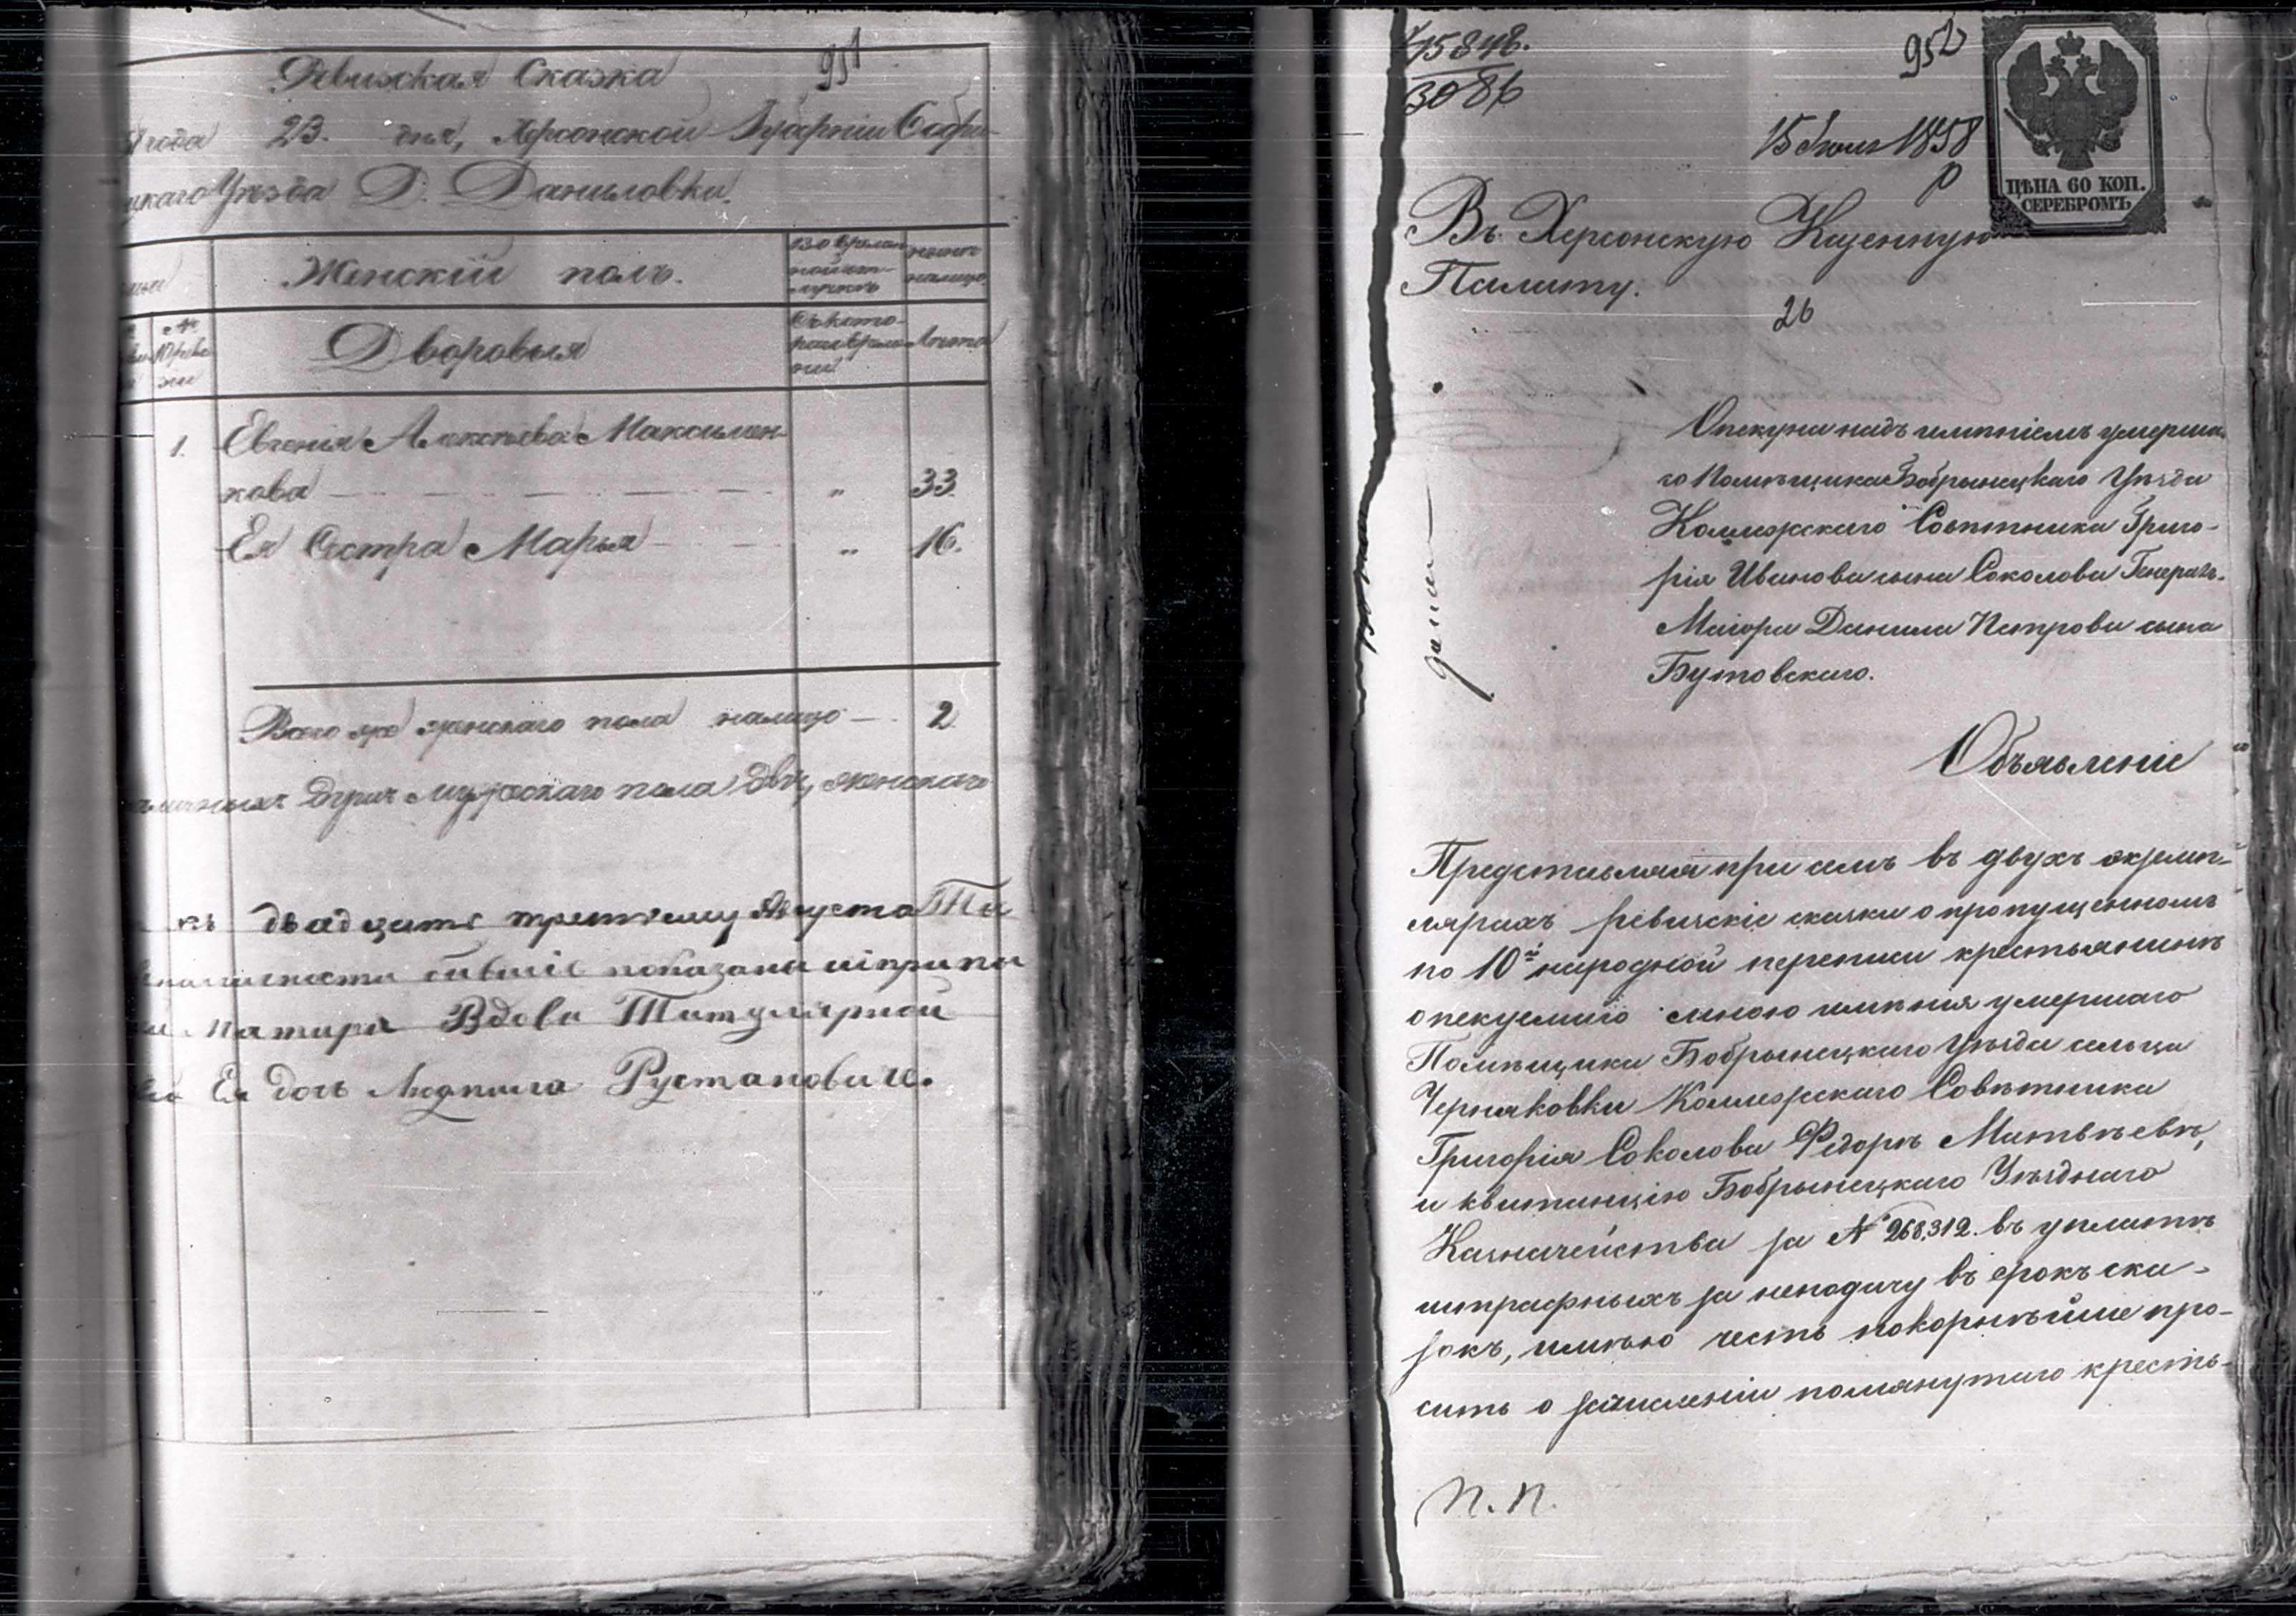 951
Ревизская Сказка
года 23. дня, Херсонской Губерніи Бобри-
нецкаго Уѣзда Д. Даниловки.
Женскій полъ.
Дворовыя Лѣта
1. Евгенія Алексѣева Максимен-
кова — " 33
Ея Сестра Марья — " 16.
Всего же женскаго пола налицо — 2
душъ мужескаго пола двѣ, женскаго
къ двадцать третьему Августа
бывшіе показаны
Вдова Титулярной
Ея дочь Людмила Рустановичь.
15848.
3086
952
15 Июля 1858
ЦѢНА 60 КОП.
СЕРЕБРОМЪ
Въ Херсонскую Казенную
Палату.
26
Опекуна надъ имѣніемъ умерша-
го Помѣщика Бобрынецкаго Уѣзда
Коллежскаго Совѣтника Григо-
рія Иванова сына Соколова Генералъ-
Маіора Данила Петрова сына
Бутовскаго.
Объявленіе
Представляя при семъ въ двухъ экземп-
лярахъ ревизскіе сказки о пропущенномъ
по 10й народной переписи крестьянинѣ
опекуемаго мною имѣнія умершаго
Помѣщика Бобрынецкаго Уѣзда сельца
Черняковки Коллежскаго Совѣтника
Григорія Соколова Федорѣ Матвѣевѣ,
и квитанцію Бобрынецкаго Уѣзднаго
Казначейства за № 268.312. въ уплатѣ
штрафныхъ за неподачу въ срокъ ска-
зокъ, имѣю честь покорнѣйше про-
сить о зачисленіи помянутаго кресть-
П. П.